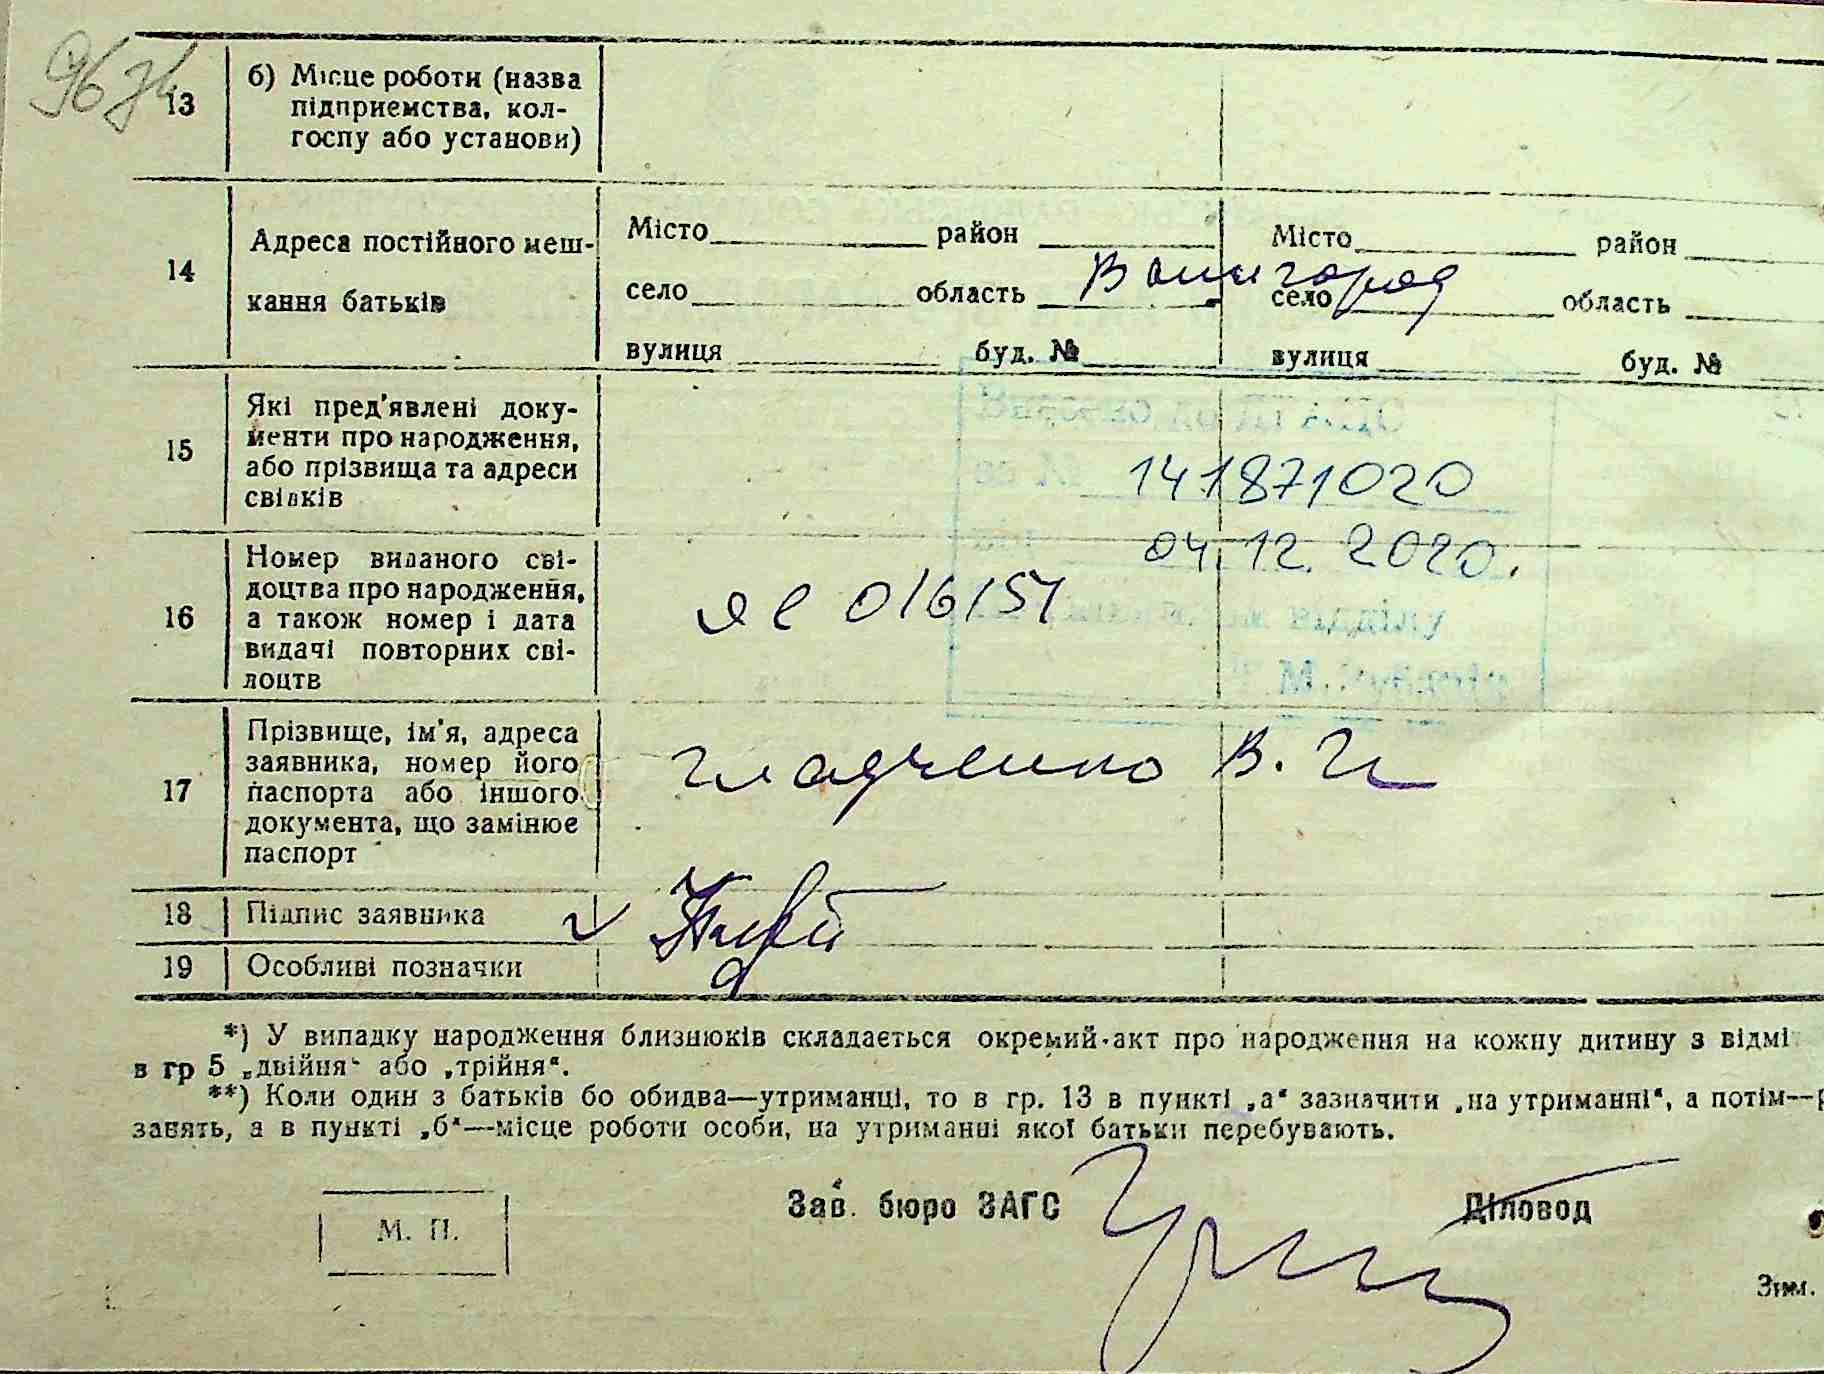 13
б) Місце роботи (назва
підприємства, кол-
госпу або установи)
14
Адреса постійного меш-
кання батьків
Місто район Місто район
село область село область
Вишгород
вулиця буд. № вулиця буд. №
15
Які пред'явлені доку-
менти про народження,
або прізвища та адреси
свідків
141871020
04.12.2020.
16
Номер виданого сві-
доцтва про народження,
а також номер і дата
видачі повторних сві-
доцтв
016151
відділу
17
Прізвище, ім'я, адреса
заявника, номер його
паспорта або іншого
документа, що замінює
паспорт
Гладченко В. И
18 Підпис заявника
19 Особливі позначки
*) У випадку народження близнюків складається окремий акт про народження на кожну дитину з відмі
в гр 5 „двійня“ або „трійня“.
**) Коли один з батьків бо обидва—утриманці, то в гр. 13 в пункті „а“ зазначити „на утриманні“, а потім—р
занять, а в пункті „б“—місце роботи особи, на утриманні якої батьки перебувають.
М. П.
Зав. бюро ЗАГС Діловод
Зим.